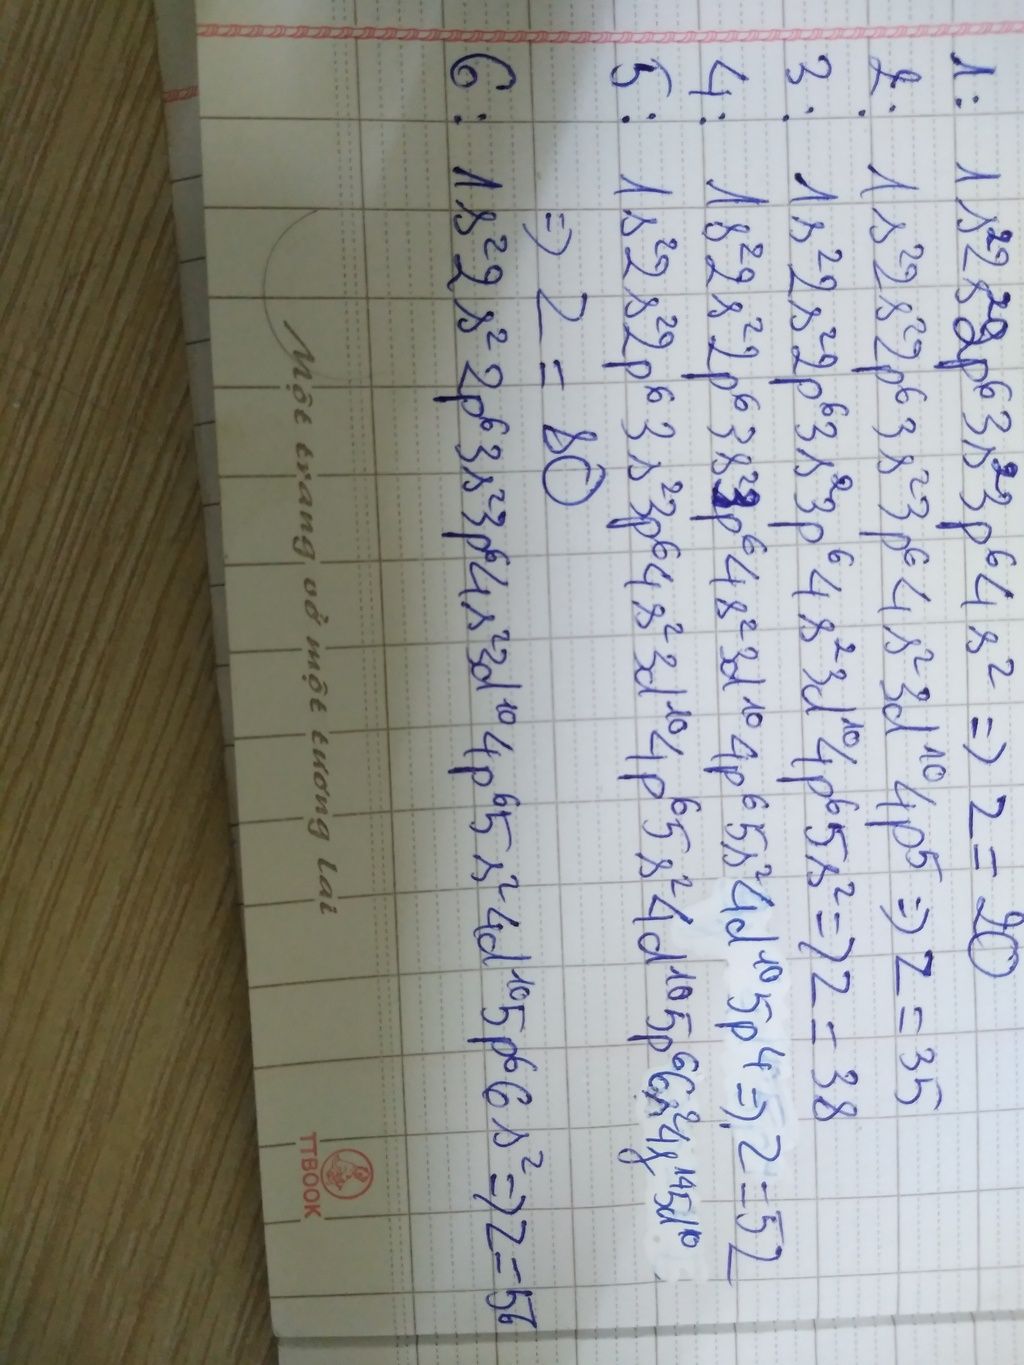 1: 1s²2s²2p⁶3s²3p⁶4s² => Z = 20
2: 1s²2s²2p⁶3s²3p⁶4s²3d¹⁰4p⁵ => Z = 35
3: 1s²2s²2p⁶3s²3p⁶4s²3d¹⁰4p⁶5s² => Z = 38
4: 1s²2s²2p⁶3s²3p⁶4s²3d¹⁰4p⁶5s²4d¹⁰5p⁴ => Z = 52
5: 1s²2s²2p⁶3s²3p⁶4s²3d¹⁰4p⁶5s²4d¹⁰5p⁶6s²4f¹⁴5d¹⁰
=> Z = 80
6: 1s²2s²2p⁶3s²3p⁶4s²3d¹⁰4p⁶5s²4d¹⁰5p⁶6s² => Z = 56
Một trang vở một tương lai
TTBOOK